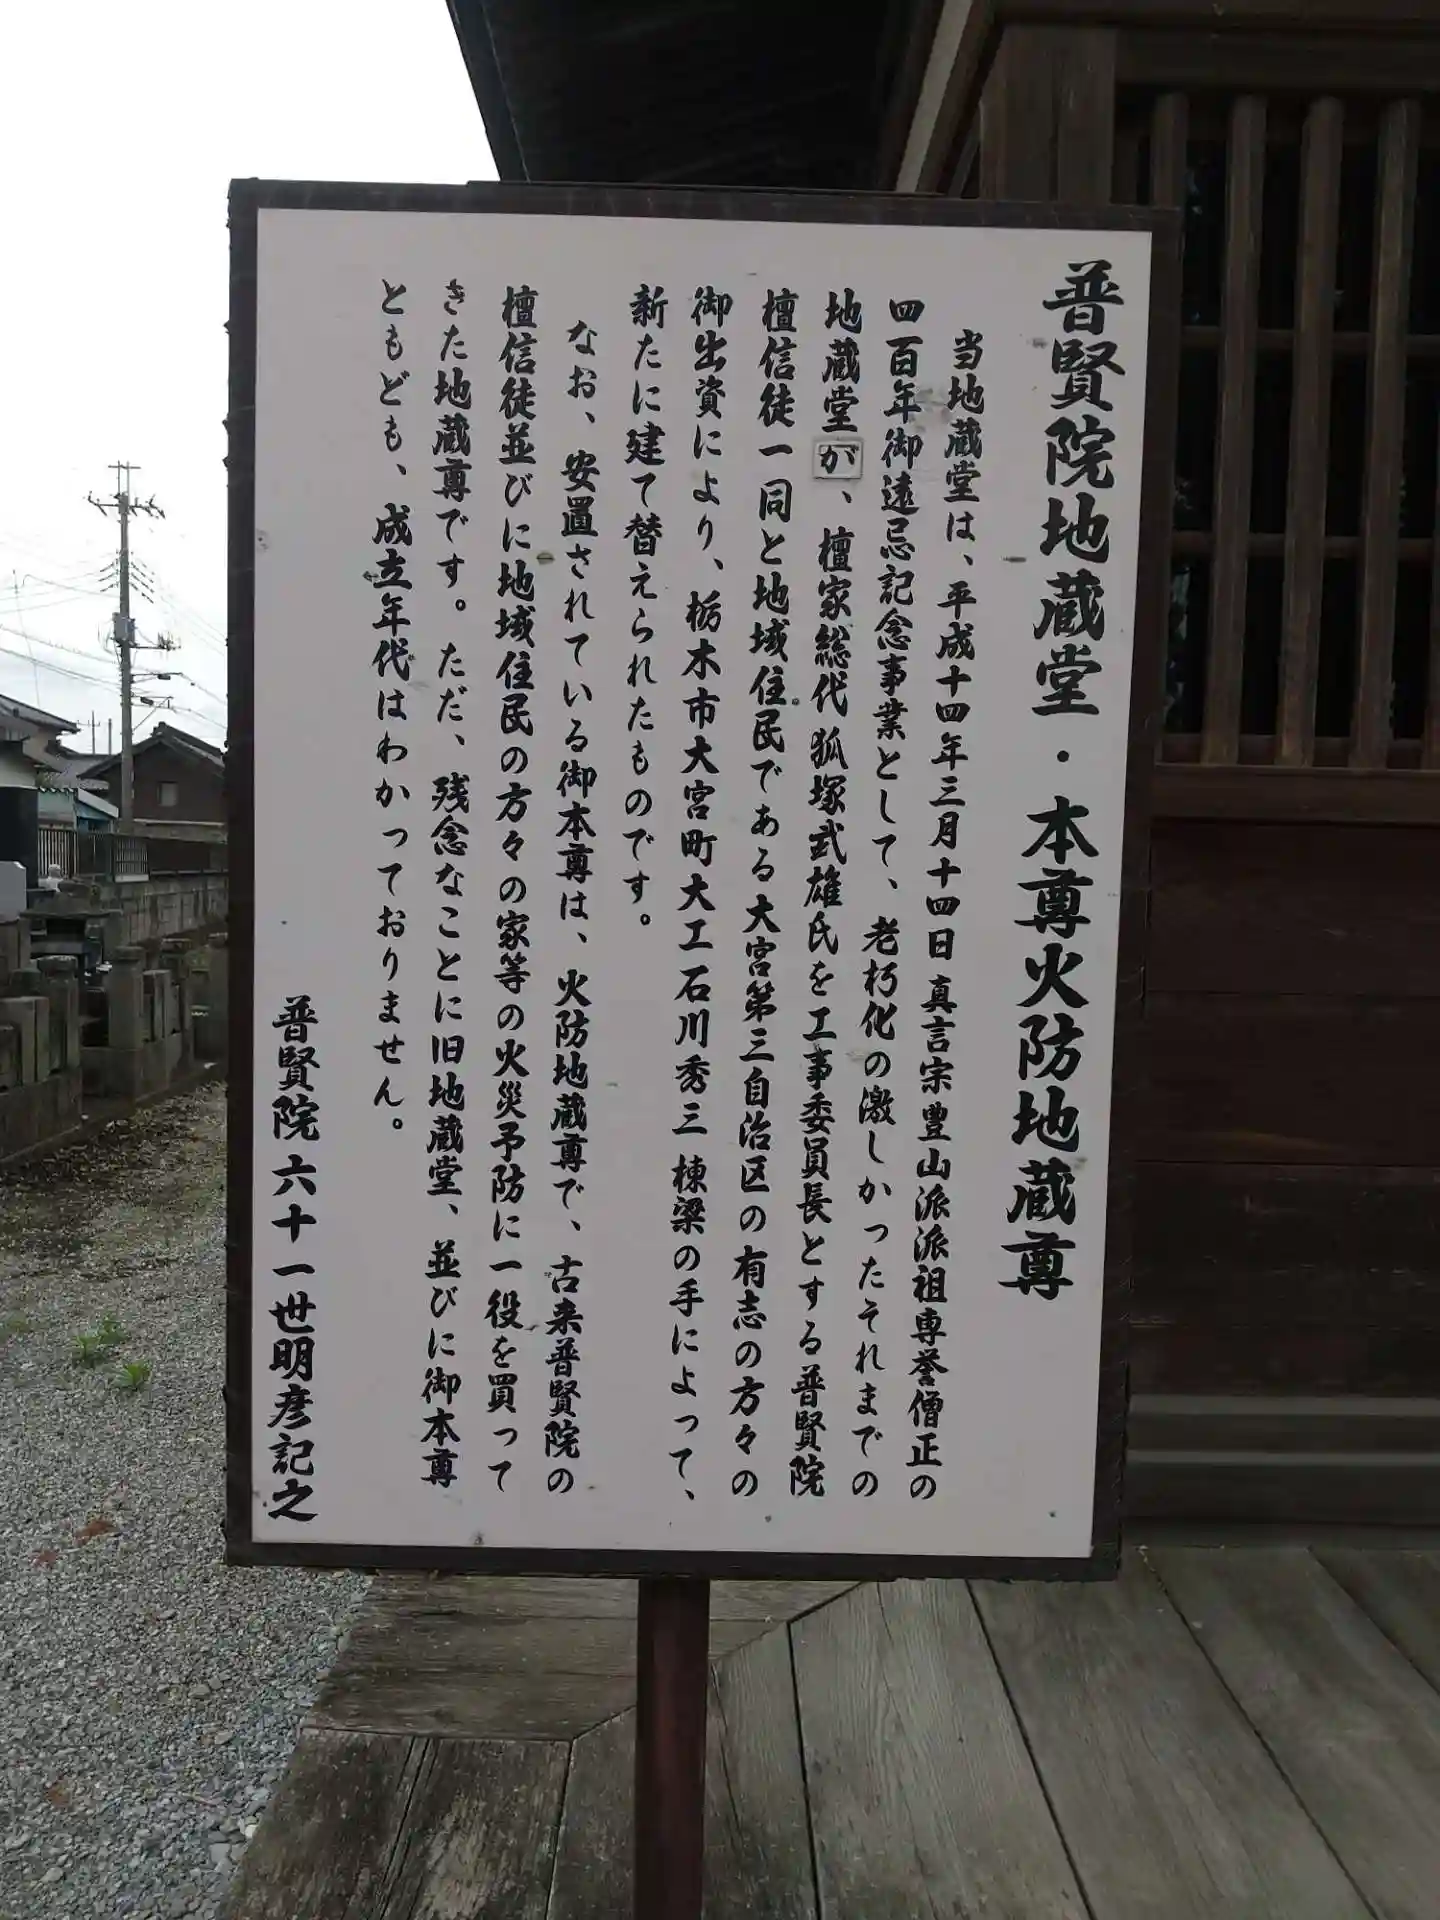 普賢院地蔵堂・本尊火防地蔵尊
当地蔵堂は、平成十四年三月十四日真言宗豊山派派祖専誉僧正の
四百年御遠忌記念事業として、老朽化の激しかったそれまでの
地蔵堂が、檀家総代狐塚武雄氏を工事委員長とする普賢院
檀信徒一同と地域住民である大宮第三自治区の有志の方々の
御出資により、栃木市大宮町大工石川秀三棟梁の手によって、
新たに建て替えられたものです。
なお、安置されている御本尊は、火防地蔵尊で、古来普賢院の
檀信徒並びに地域住民の方々の家等の火災予防に一役を買って
きた地蔵尊です。ただ、残念なことに旧地蔵堂、並びに御本尊
ともども、成立年代はわかっておりません。
普賢院六十一世明彦記之